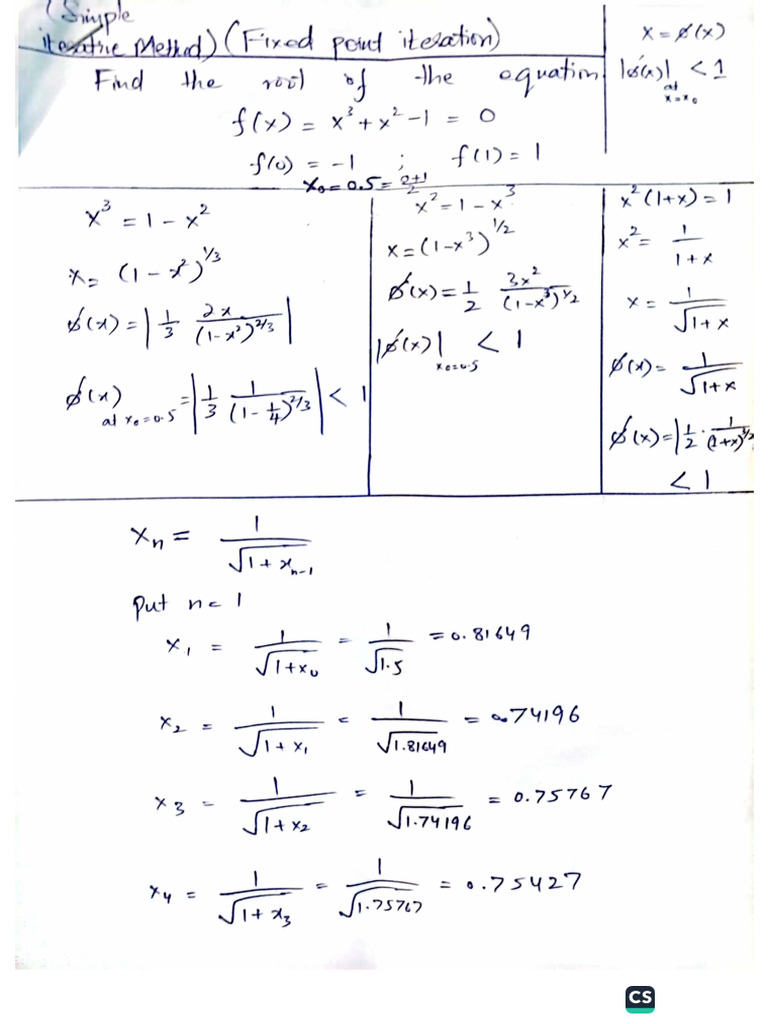 (Simple
iterative Method) (Fixed point iteration)
x = ϕ(x)
|ϕ'(x)| < 1
at
x=x₀
Find the root of the equation
f(x) = x³ + x² - 1 = 0
f(0) = -1 ; f(1) = 1
x₀ = 0.5 = (0+1)/2
x³ = 1 - x²
x = (1 - x²)^(1/3)
ϕ'(x) = |1/3 2x/(1-x²)^(2/3)|
ϕ'(x) at x₀=0.5 = |1/3 1/(1-1/4)^(2/3)| < 1
x² = 1 - x³
x = (1-x³)^(1/2)
ϕ'(x) = 1/2 3x²/(1-x³)^(1/2)
|ϕ'(x)| x₀=0.5 < 1
x²(1+x) = 1
x² = 1/(1+x)
x = 1/√(1+x)
ϕ(x) = 1/√(1+x)
ϕ'(x) = |1/2 · 1/(1+x)^(3/2)
< 1
xₙ = 1/√(1+xₙ₋₁)
put n = 1
x₁ = 1/√(1+x₀) = 1/√1.5 = 0.81649
x₂ = 1/√(1+x₁) = 1/√1.81649 = 0.74196
x₃ = 1/√(1+x₂) = 1/√1.74196 = 0.75767
x₄ = 1/√(1+x₃) = 1/√1.75767 = 0.75427
CS